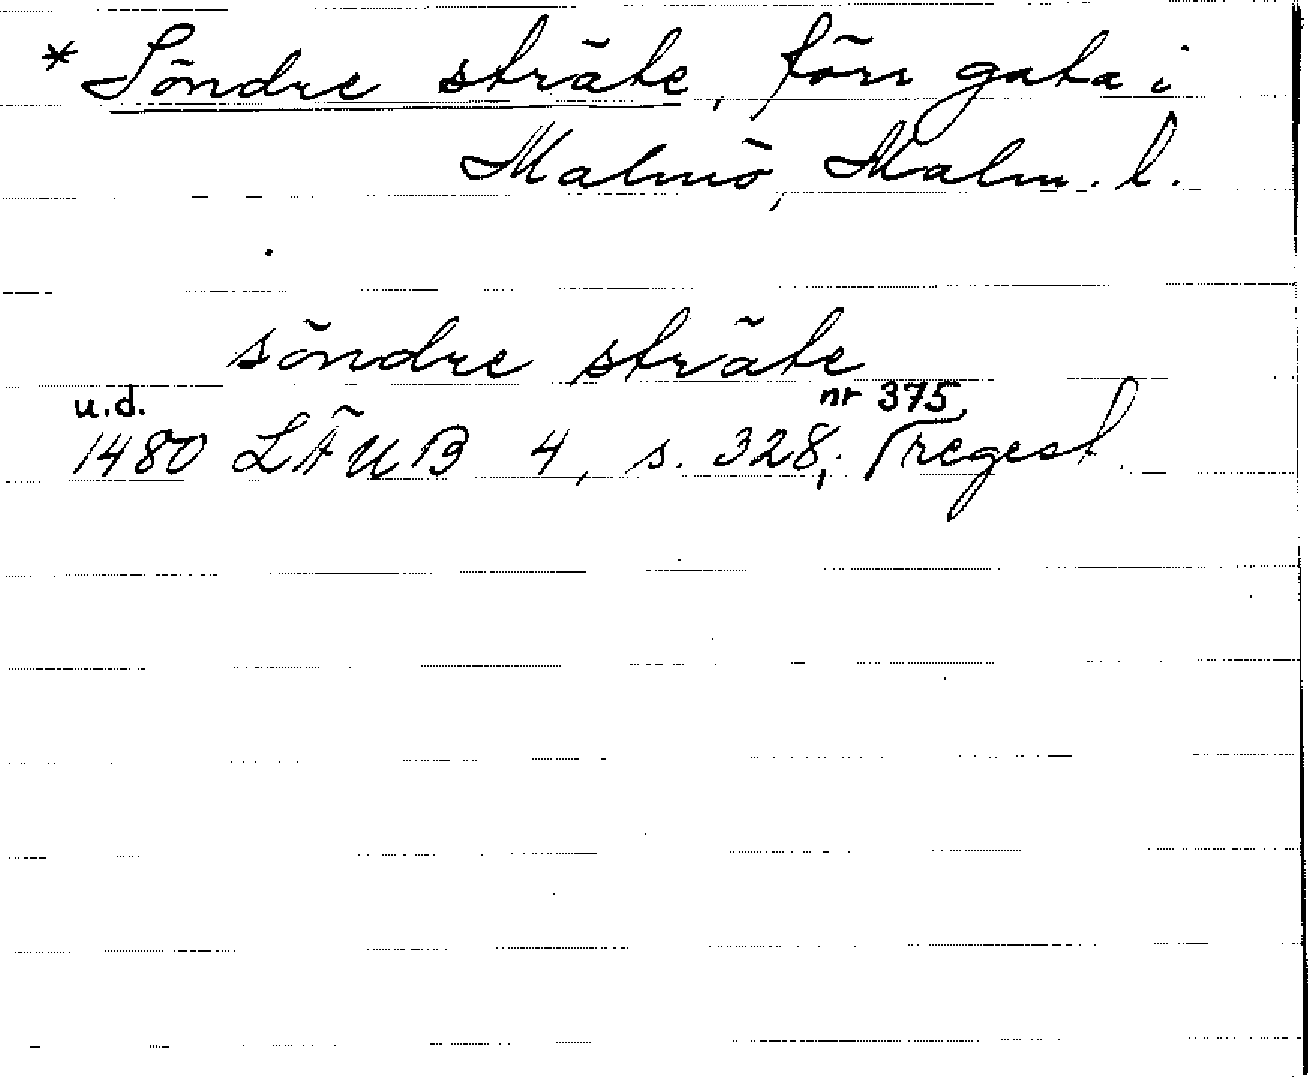 * Söndre sträte, förr gata i
Malmö, Malm. l.
söndre sträte
u.d. nr 375,
1480 LÄUB 4, s. 328, regest.